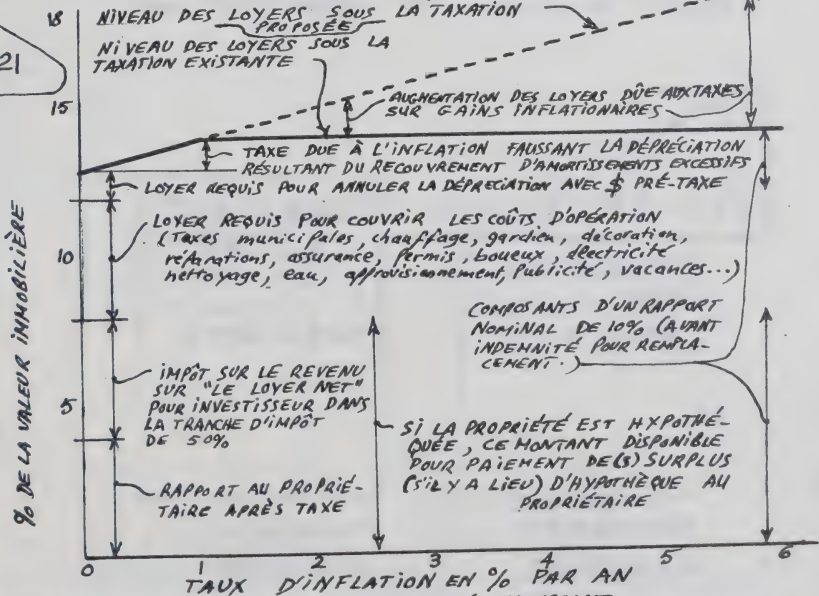 18
NIVEAU DES LOYERS SOUS LA TAXATION
PROPOSÉE
21
NIVEAU DES LOYERS SOUS LA
TAXATION EXISTANTE
15
AUGMENTATION DES LOYERS DÛE AUX TAXES
SUR GAINS INFLATIONAIRES
TAXE DUE À L'INFLATION FAUSSANT LA DÉPRÉCIATION
RÉSULTANT DU RECOUVREMENT D'AMORTISSEMENTS EXCESSIFS
LOYER REQUIS POUR ANNULER LA DÉPRECIATION AVEC $ PRÉ-TAXE
LOYER REQUIS POUR COUVRIR LES COÛTS D'OPÉRATION
(Taxes municipales, chauffage, gardien, décoration,
réparations, assurance, permis, boueux, électricité
nettoyage, eau, approvisionnement, Publicité, vacances...)
10
COMPOSANTS D'UN RAPPORT
NOMINAL DE 10% (AVANT
INDEMNITÉ POUR REMPLA-
CEMENT.)
% DE LA VALEUR IMMOBILIÈRE
IMPÔT SUR LE REVENU
SUR "LE LOYER NET"
POUR INVESTISSEUR DANS
LA TRANCHE D'IMPÔT
DE 50%
5
SI LA PROPRIÉTÉ EST HYPOTHÉ-
QUÉE, CE MONTANT DISPONIBLE
POUR PAIEMENT DE(S) SURPLUS
(S'IL Y A LIEU) D'HYPOTHÈQUE AU
PROPRIÉTAIRE
RAPPORT AU PROPRIÉ-
TAIRE APRÈS TAXE
0 1 2 3 4 5 6
TAUX D'INFLATION EN % PAR AN